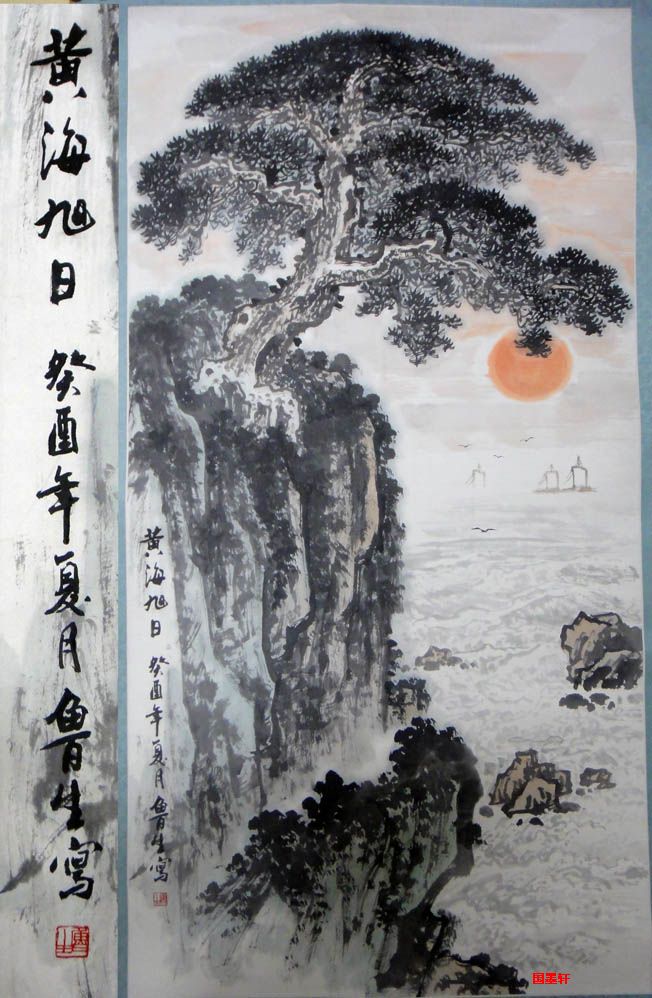 黄海旭日 癸酉年夏月 鲁生寫
黄海旭日 癸酉年夏月 鲁生寫
国墨轩